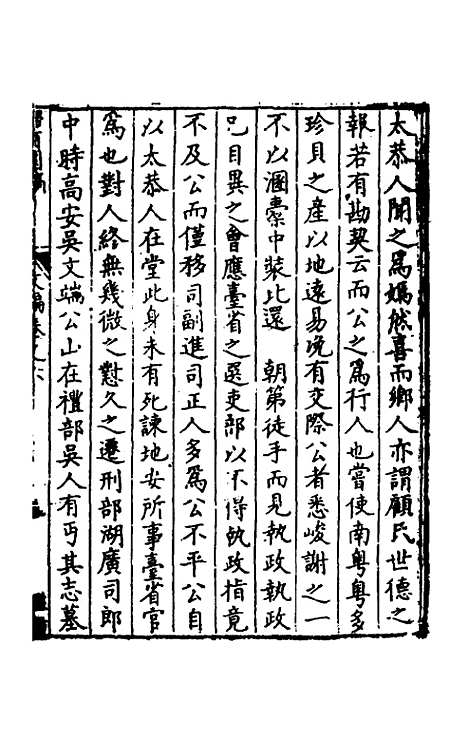 太恭人聞之為嫣然喜而鄉人亦謂顧氏世德之
報若有勘契云而公之為行人也嘗使南粤粤多
珍貝之產以地遠易浼有交際公者悉峻謝之一
不以溷橐中裝比還 朝第徒手而見執政執政
已目異之會應臺省之選吏部以不得執政指竟
不及公而僅移司副進司正人多為公不平公自
以太恭人在堂此身未有死諫地安所事臺省官
為也對人終無幾微之懟久之遷刑部湖廣司郎
中時高安吳文端公山在禮部吳人有丐其志墓
文編卷之六